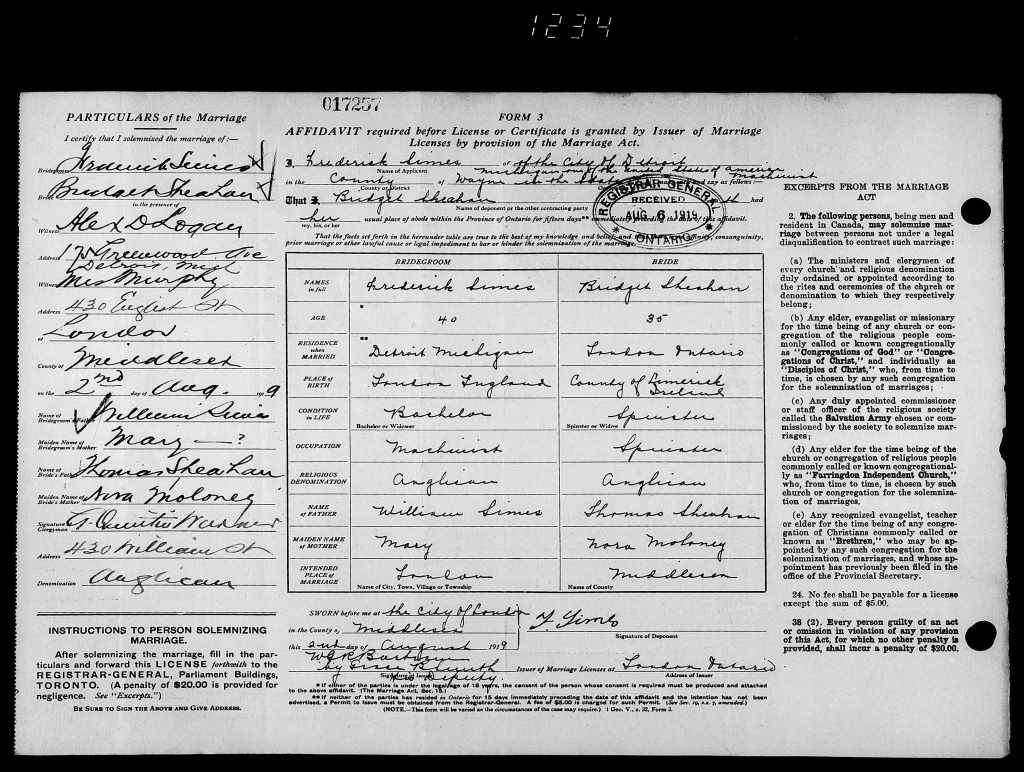 1234
017257
PARTICULARS of the Marriage
I certify that I solemnized the marriage of:—
Bridegroom Frederick Simes
Bride Bridget Sheahan
in the presence of
Witness Alex D Logan
Address 75 Greenwood Ave
Detroit, Mich
Witness Mrs Murphy
Address 430 English St
at London
County of Middlesex
on the 2nd day of Aug. 1919
Name of Bridegroom's Father William Simes
Maiden Name of Bridegroom's Mother Mary — ?
Name of Bride's Father Thomas Sheahan
Maiden Name of Bride's Mother Nora Moloney
Signature Clergyman G. Quintin Warner
Address 430 William St
Denomination Anglican
INSTRUCTIONS TO PERSON SOLEMNIZING
MARRIAGE.
After solemnizing the marriage, fill in the par-
ticulars and forward this LICENSE forthwith to the
REGISTRAR-GENERAL, Parliament Buildings,
TORONTO. (A penalty of $20.00 is provided for
negligence. See "Excerpts.")
BE SURE TO SIGN THE ABOVE AND GIVE ADDRESS.
FORM 3
AFFIDAVIT required before License or Certificate is granted by Issuer of Marriage
Licenses by provision of the Marriage Act.
I, Frederick Simes of of the City of Detroit
Name of Applicant
in the County of Wayne in the State of Michigan one of the United States of America Machinist
County or District
say as follows:
That I Bridget Sheahan had
Name of deponent or the other contracting party
her usual place of abode within the Province of Ontario for fifteen days** immediately
my, his, or her
REGISTRAR GENERAL
RECEIVED
AUG 6 1919
ONTARIO
That the facts set forth in the hereunder table are true to the best of my knowledge and belief, and affinity, consanguinity,
prior marriage or other lawful cause or legal impediment to bar or hinder the solemnization of the marriage.
BRIDEGROOM BRIDE
NAMES in full Frederick Simes Bridget Sheahan
AGE * 40 35
RESIDENCE when MARRIED ** Detroit Michigan London Ontario
PLACE OF BIRTH London England County of Limerick Ireland
CONDITION IN LIFE Bachelor Spinster
Bachelor or Widower Spinster or Widow
OCCUPATION Machinist Spinster
RELIGIOUS DENOMINATION Anglican Anglican
NAME OF FATHER William Simes Thomas Sheahan
MAIDEN NAME OF MOTHER Mary Nora Moloney
INTENDED PLACE OF MARRIAGE London Middlesex
Name of City, Town, Village, Etc. Name of County
SWORN before me at the City of London
in the County of Middlesex F Simes
Signature of Deponent
this 2nd day of August 1919
Deputy
Signature of Issuer
Issuer of Marriage Licenses at London Ontario
Address of Issuer
* If either of the parties is under the legal age of 18 years, the consent of the person whose consent is required must be produced and attached
to the above affidavit. (The Marriage Act, Sec. 15.)
** If neither of the parties has resided in Ontario for 15 days immediately preceding the date of this affidavit and the intention has not been
advertised, a Permit to Issue must be obtained from the Registrar-General. A fee of $5.00 is charged for such Permit. (See Sec. 19, s.s. 7, amended.)
(NOTE.—This form will be varied as the circumstances of the case may require.) 1 Geo. V., c. 32, Form 3.
EXCERPTS FROM THE MARRIAGE
ACT
2. The following persons, being men and
resident in Canada, may solemnize mar-
riage between persons not under a legal
disqualification to contract such marriage:
(a) The ministers and clergymen of
every church and religious denomination
duly ordained or appointed according to
the rites and ceremonies of the church or
denomination to which they respectively
belong;
(b) Any elder, evangelist or missionary
for the time being of any church or con-
gregation of the religious people com-
monly called or known congregationally
as "Congregations of God" or "Congre-
gations of Christ," and individually as
"Disciples of Christ," who, from time to
time, is chosen by any such congregation
for the solemnization of marriages;
(c) Any duly appointed commissioner
or staff officer of the religious society
called the Salvation Army chosen or com-
missioned by the society to solemnize mar-
riages;
(d) Any elder for the time being of the
church or congregation of religious people
commonly called or known congregational-
ly as "Farringdon Independent Church,"
who, from time to time, is chosen by such
church or congregation for the solemniza-
tion of marriages.
(e) Any recognized evangelist, teacher
or elder for the time being of any congre-
gation of Christians commonly called or
known as "Brethren," who may be ap-
pointed by any such congregation for the
solemnization of marriages, and whose ap-
pointment has previously been filed in the
office of the Provincial Secretary.
24. No fee shall be payable for a license
except the sum of $5.00.
38 (2). Every person guilty of an act
or omission in violation of any provision
of this Act, for which no other penalty is
provided, shall incur a penalty of $20.00.